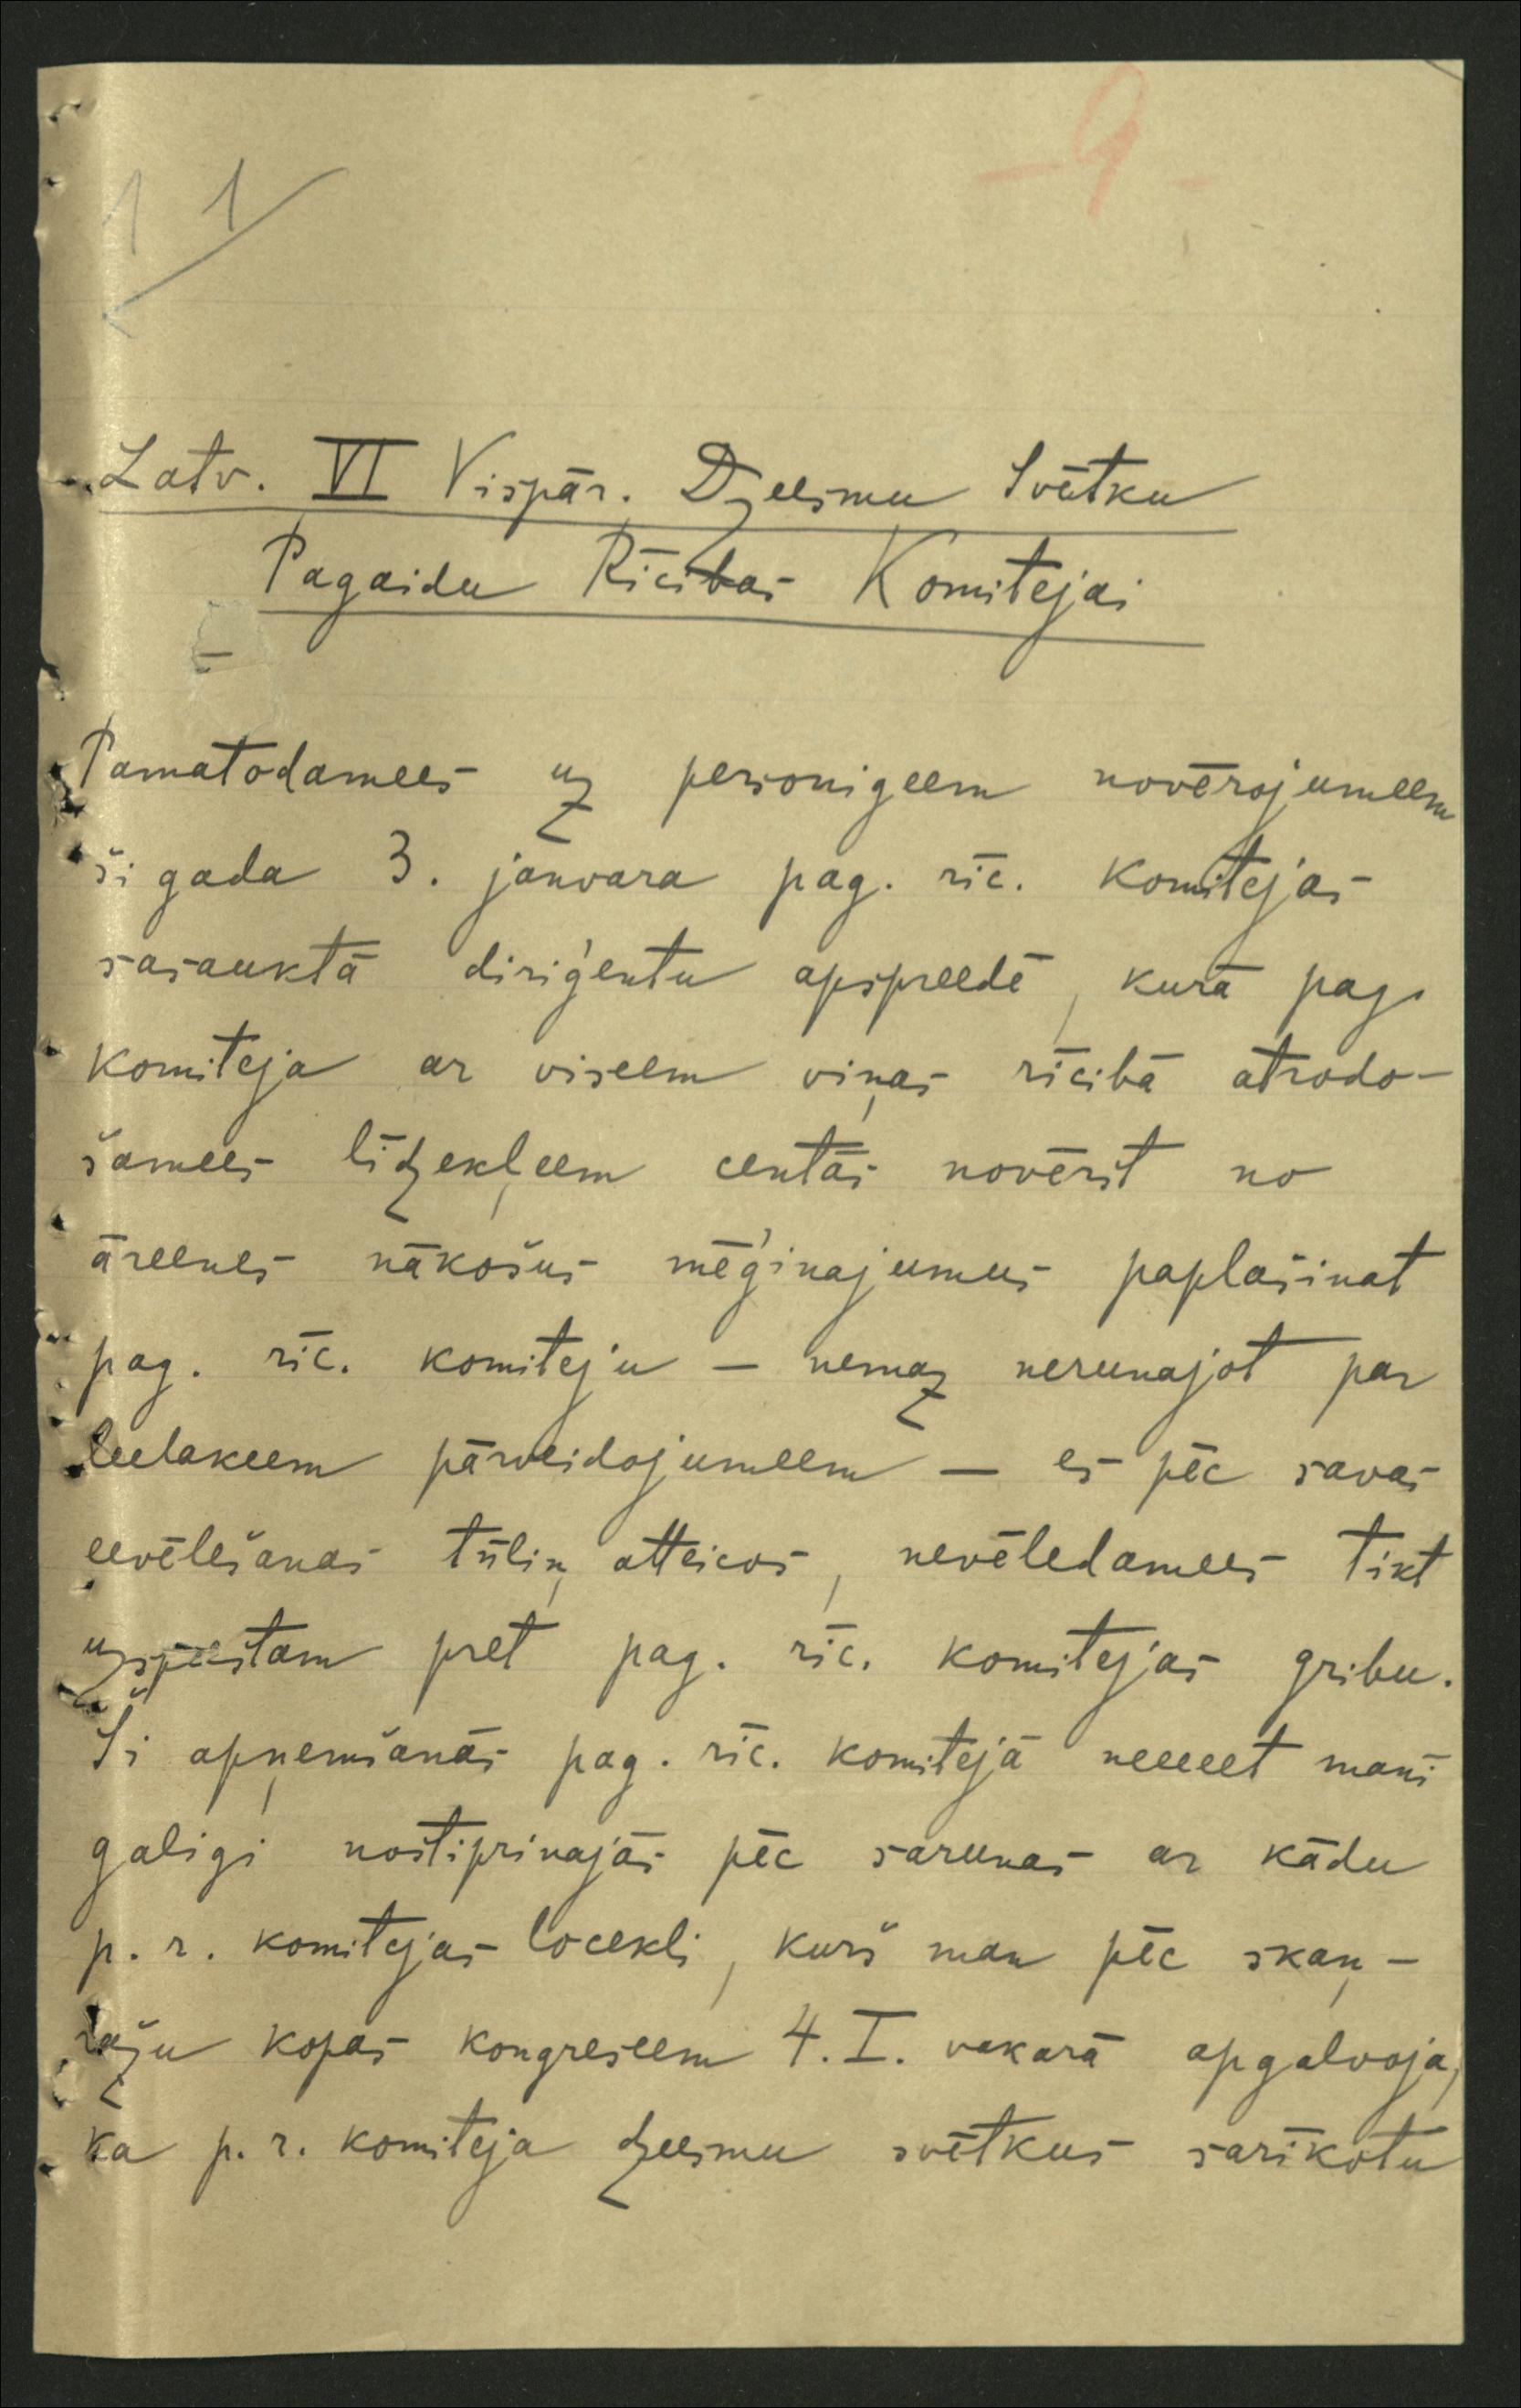 - 9 -
1 1
Latv. VI Vispār. Dzeesmu Svētku
Pagaidu Rīcibas Komitejai
Pamatodamees uz personigeem novērojumeem
ši gada 3. janvara pag. rīc. komitejas
sasauktā diriģentu apspreedē, kurā pag.
komiteja ar viseem viņas rīcibā atrodo-
šamees līdzekļeem centās novērst no
āreenes nākošus mēģinajumus paplašinat
pag. rīc. komiteju — nemaz nerunajot par
leelakeem pārveidojumeem — es pēc savas
eevēlešanas tūliņ atteicos, nevēledamees tikt
uzspeestam pret pag. rīc. komitejas gribu.
Ši apņemšanās pag. rīc. komitejā neeeet manī
galigi nostiprinajās pēc sarunas ar kādu
p. r. komitejas locekli, kurš man pēc skaņ-
ražu kopas kongreseem 4. I. vakarā apgalvoja,
ka p. r. komiteja dzeesmu svētkus sarīkotu